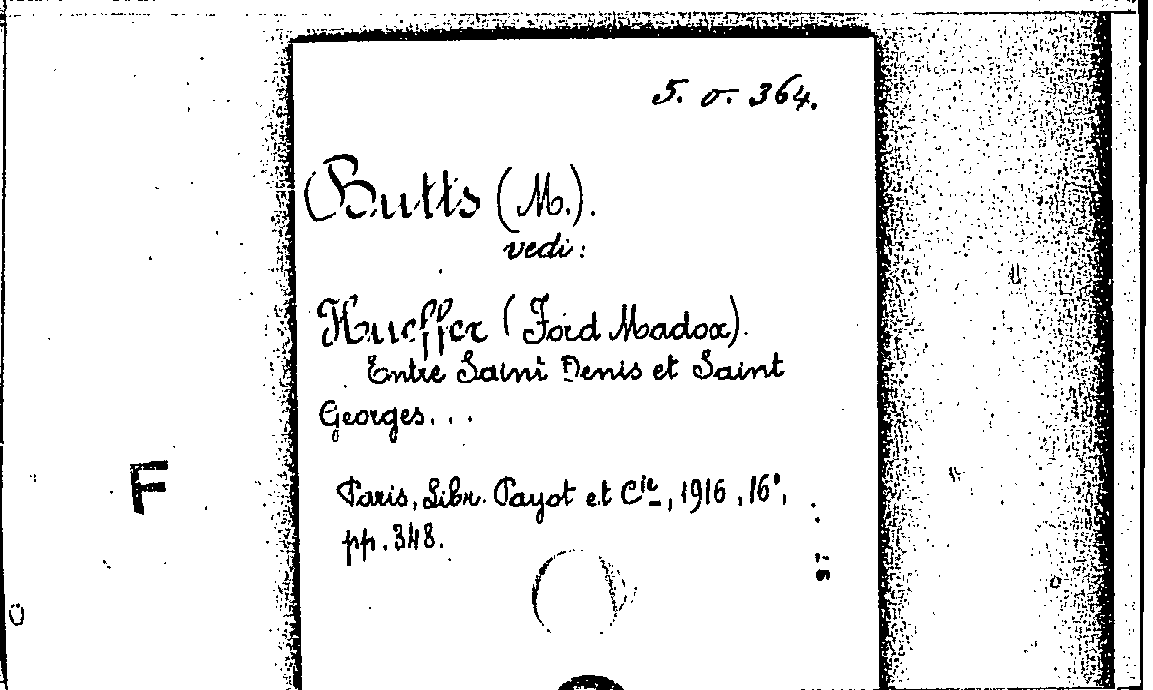 5. σ. 364.
Butts (M.).
vedi:
Hueffer (Ford Madox).
Entre Saint Denis et Saint
Georges...
F
Paris, Libr. Payot et Cie, 1916, 16°,
pp. 348.